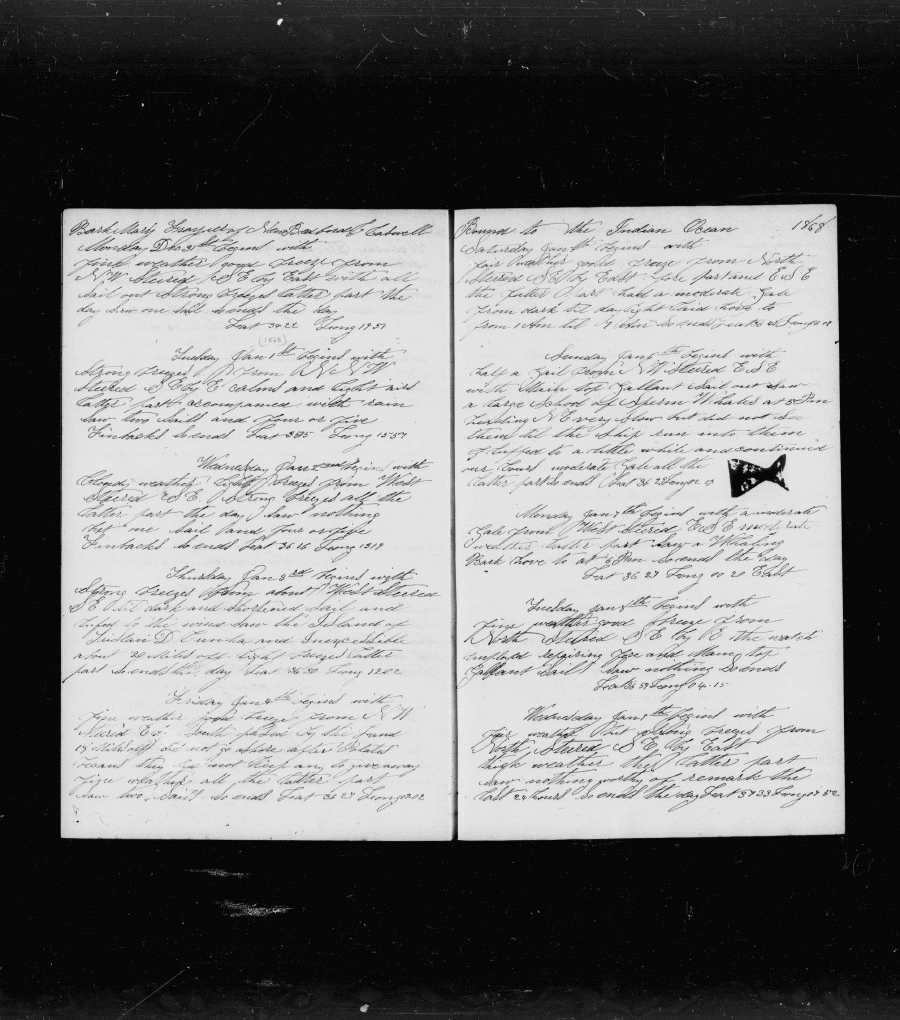 Bark Mary Frazier of New Bedford C Caswell
Monday Dec 31st begins with
fine weather good breeze from
NW Steered SE by East with all
sail out Strong breezes latter part the
day saw one sail so ends the day
Lat 3422 Long 1951
(1868)
Tuesday Jan 1st begins with
Strong breezes from NNW
Steered SE by E calms and light airs
latter part accompanied with rain
saw two sails and four or five
Finbacks so ends Lat 3525 Long 1557
Wednesday Jan 2nd begins with
Cloudy weather light breezes from West
Steered SE Strong breezes all the
latter part the day saw nothing
but one sail and four or five
Finbacks so ends Lat 3616 Long 1319
Thursday Jan 3rd begins with
Strong breezes from about West Steered
SE til dark and shortened sail and
luffed to the wind saw the Islands of
Tristan D Cunha and Inaccessible
about 20 Miles off light breezes latter
part so ends the day Lat 3650 Long 1202
Friday Jan 4th begins with
fine weather good breeze from NW
Steered E by South passed by the land
did not go ashore after Potatoes
means they did not keep any to give away
Fine weather all the latter part
Saw two sails so ends Lat 3627 Long 02
Bound to the Indian Ocean 1868
Saturday Jan 5th begins with
fair weather good breeze from North
Steered SE by East fore part and ESE
the latter part had a moderate Gale
from dark til daylight laid hove to
from 1 Am til 4 Am so ends Lat Long
Sunday Jan 6th begins with
half a Gail from NW Steered ESE
with Main top Gallant sail out saw
a large School of Sperm Whales at Pm
heading NE very slow but did not see
them til the ship run into them
luffed to a little while and continued
our Cours moderate Gale all the
latter part so ends Lat 36 Long
Monday Jan 7th begins with a moderate
Gale from West Steered ESE moderate
weather latter part Saw a Whaling
Bark hove to at 5 Pm So ends the day
Lat 36 27 Long 00 20 East
Tuesday Jan 8th begins with
fine weather good breeze from
North Steered SE by E the watch
employed repairing Fore and Main top
Gallant Sails saw nothing So ends
Lat 3659 Long 04-15
Wednesday Jan 9th begins with
fair weather but strong breezes from
North Steered SE by East
thick weather the latter part
saw nothing worthy of remark the
last 24 hours So ends the day Lat 3733 Long 07 52